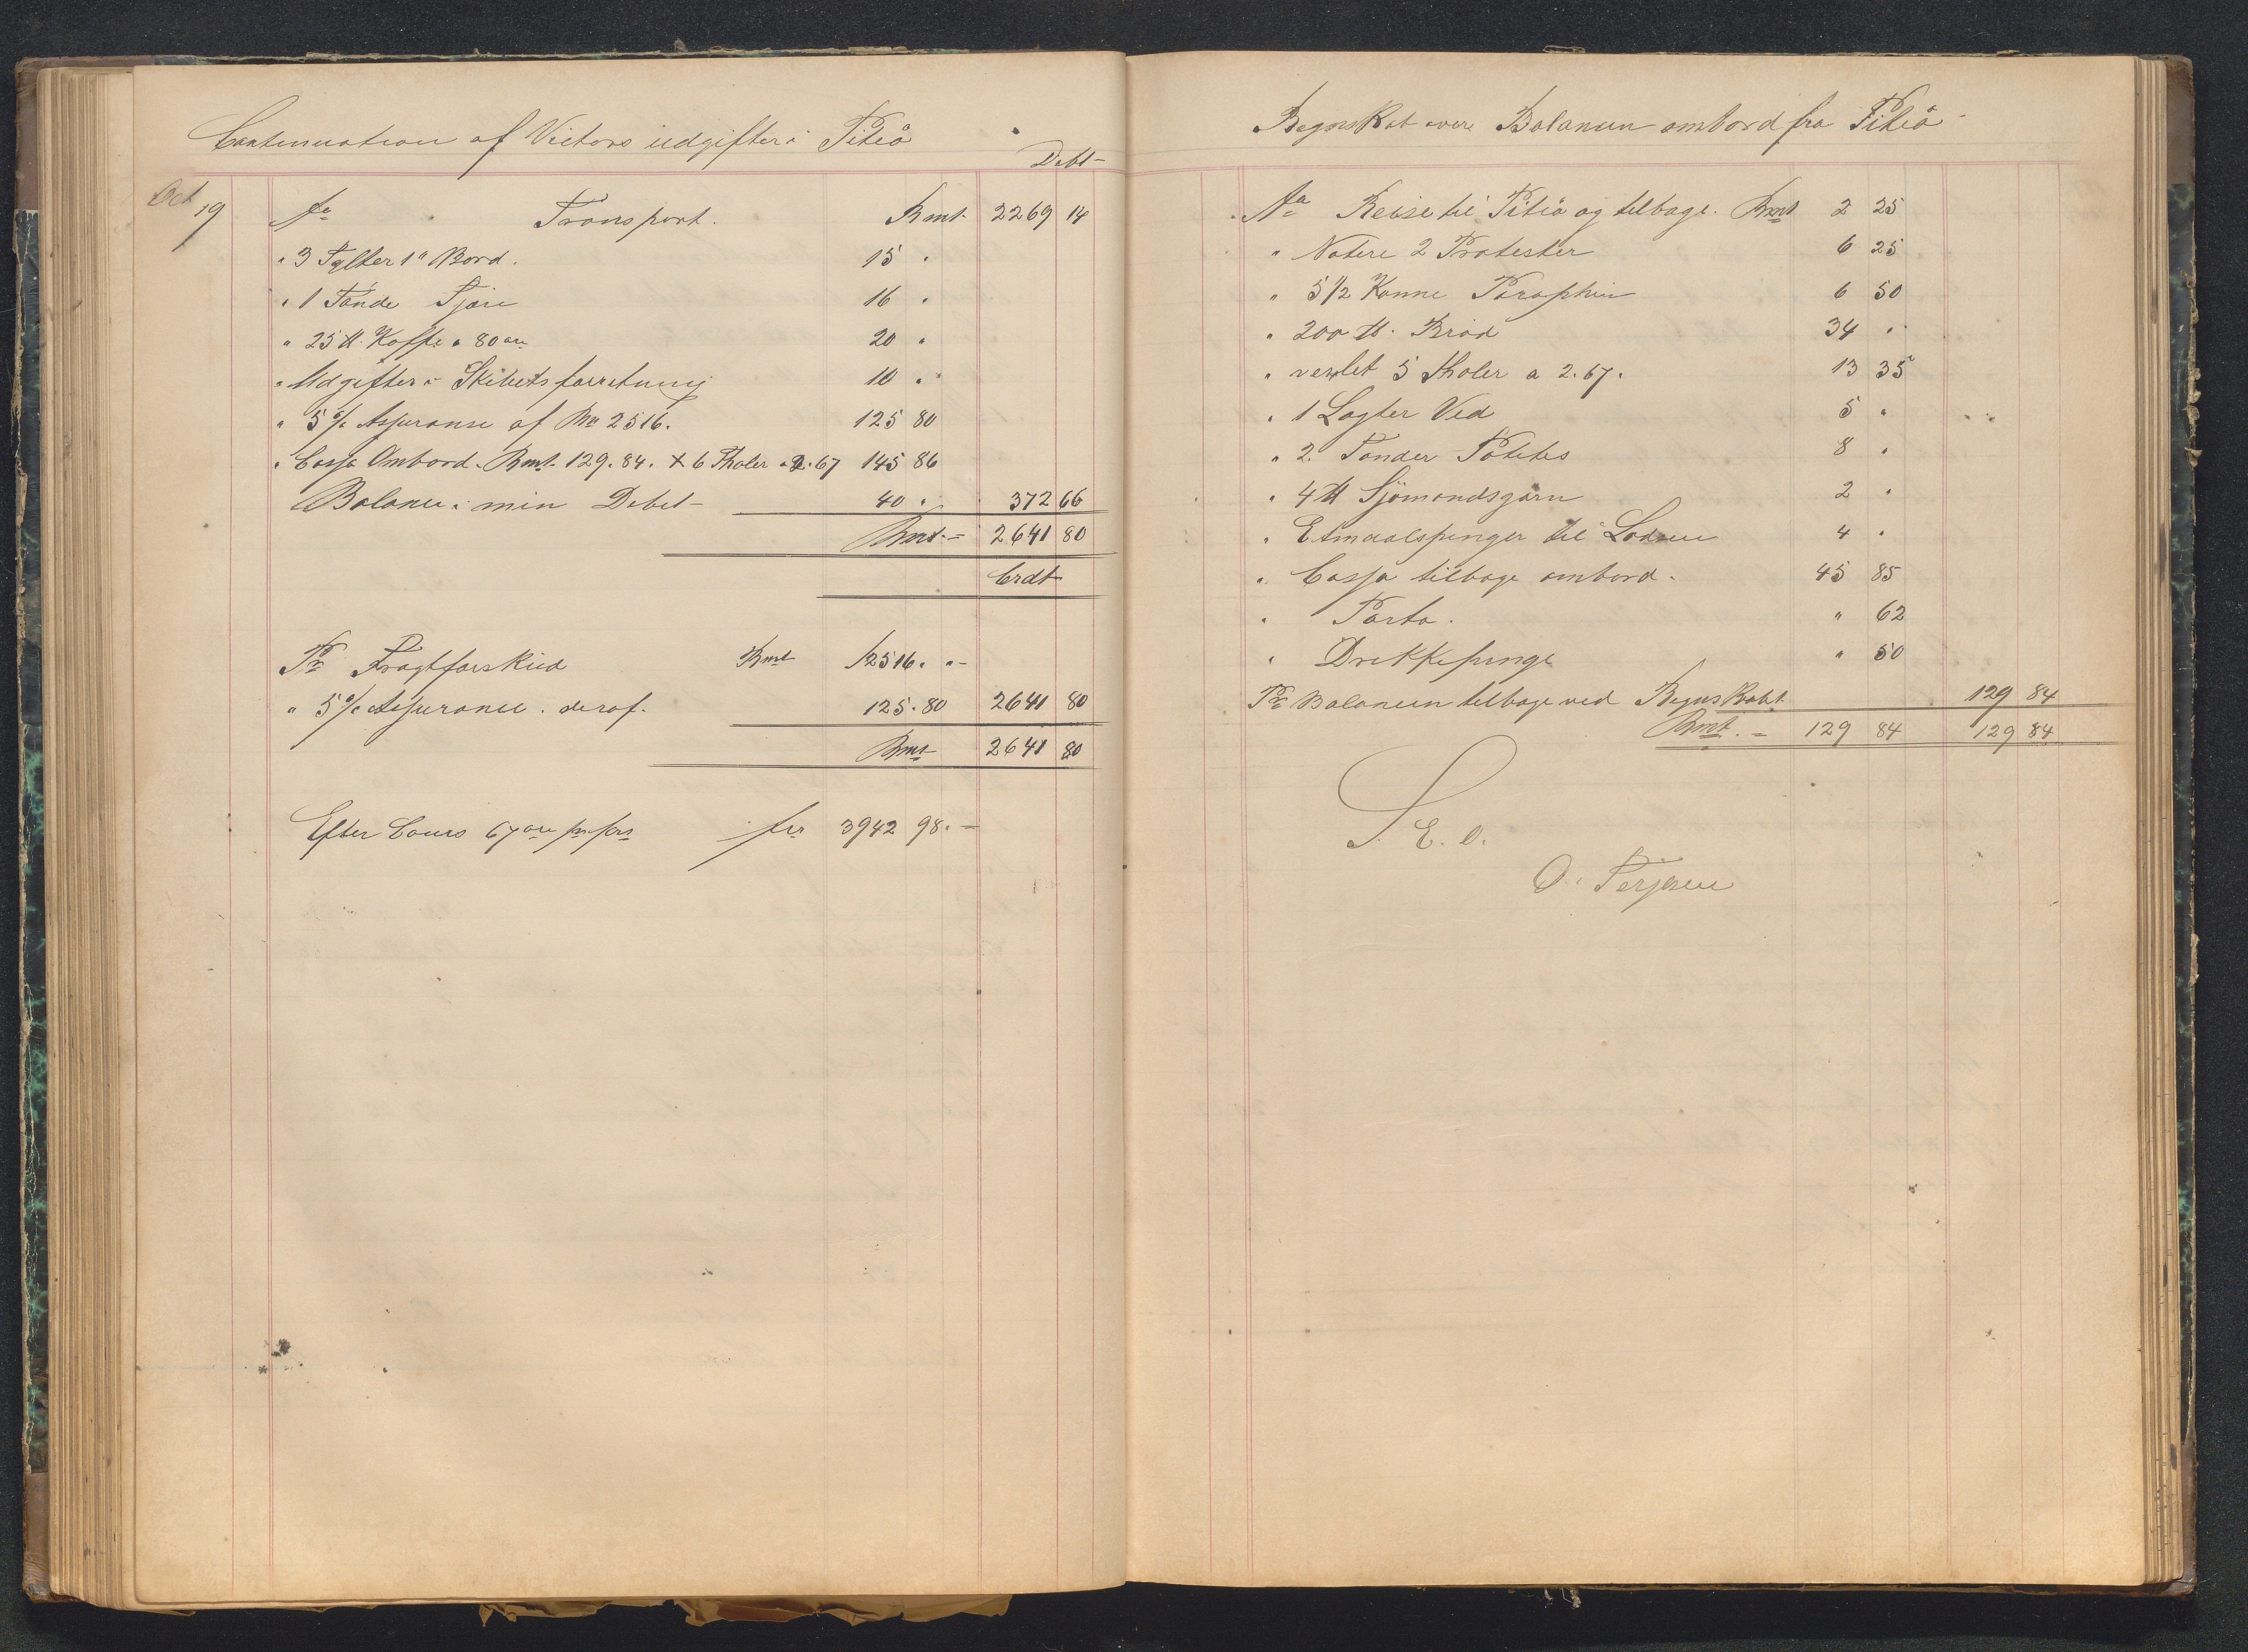 Continuation af Victors udgifter i Piteå
Debt
Oct 19 An Transport. Rmt 2269 14
" 3 Tylter 1" Bord. 15 "
" 1 Tönde Tjäre 16 "
" 25 ℔ Kaffe a 80 öre 20 "
" Udgifter i Skibets forretning 10 "
" 5 % Assuranse af Rm 2516. 125 80
" Cassa Ombord. Rmt 129.84. + 6 Thaler a 2.67 145 86
Balance i min Debet 40 " 372 66
Rmt. 2641 80
Crdt
Pr Fragtforskud Rmt 2516. "
" 5 % Assurance. deraf. 125.80 2641 80
Rmt 2641 80
Efter Cours 67 öre pr frs frs 3942 98.
Regnskab over Balancen ombord fra Piteå
An Reise til Piteå og tilbage. Rmt 2 25
" Notere 2 Protester 6 25
" 5 1/2 Kanne Paraphin 6 50
" 200 ℔. Bröd 34 "
" vexlet 5 Thaler a 2.67. 13 35
" 1 Lagter Ved 5 "
" 2. Tönder Potetes 8 "
" 4 ℔ Sjömandsgarn 2 "
" Etmaalspenger til Lodsen 4 "
" Cassa tilbage ombord. 45 85
" Porto. " 62
" Drikkepenge " 50
Pr Balancen tilbage ved Regnskabt 129 84
Rmt. 129 84 129 84
S. E. O.
O. Terjesen